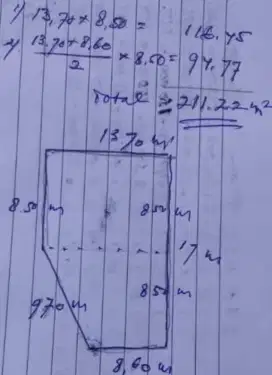 1) 13,70 x 8,50 = 116.45
2) 13.70+8,60 / 2 x 8,50 = 94.77
Total = 211.22 m²
13.70 m
8.50 m
8.50 m
17 m
8.50 m
9.70 m
8,60 m